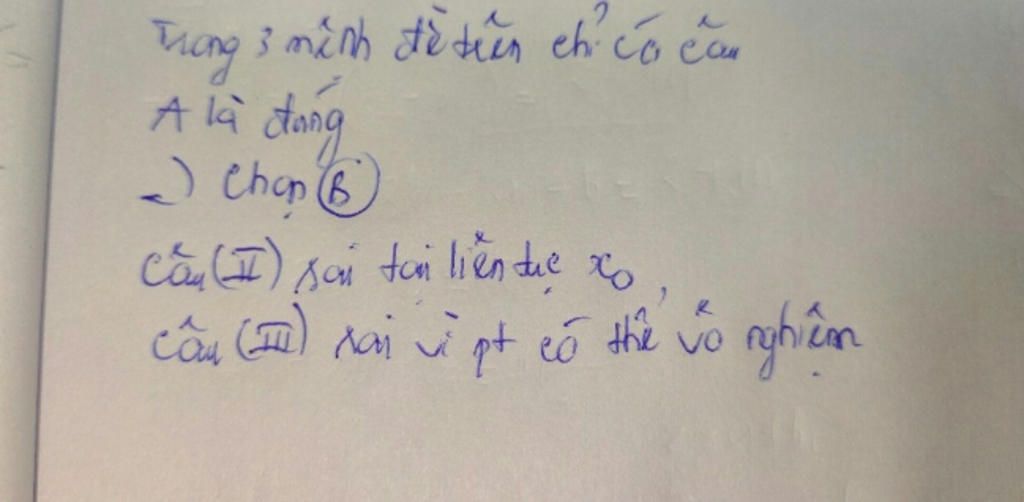 Trong 3 mệnh đề trên chỉ có câu
A là đúng
→ Chọn B
Câu (II) sai tại liên tục x₀,
câu (III) sai vì pt có thể vô nghiệm